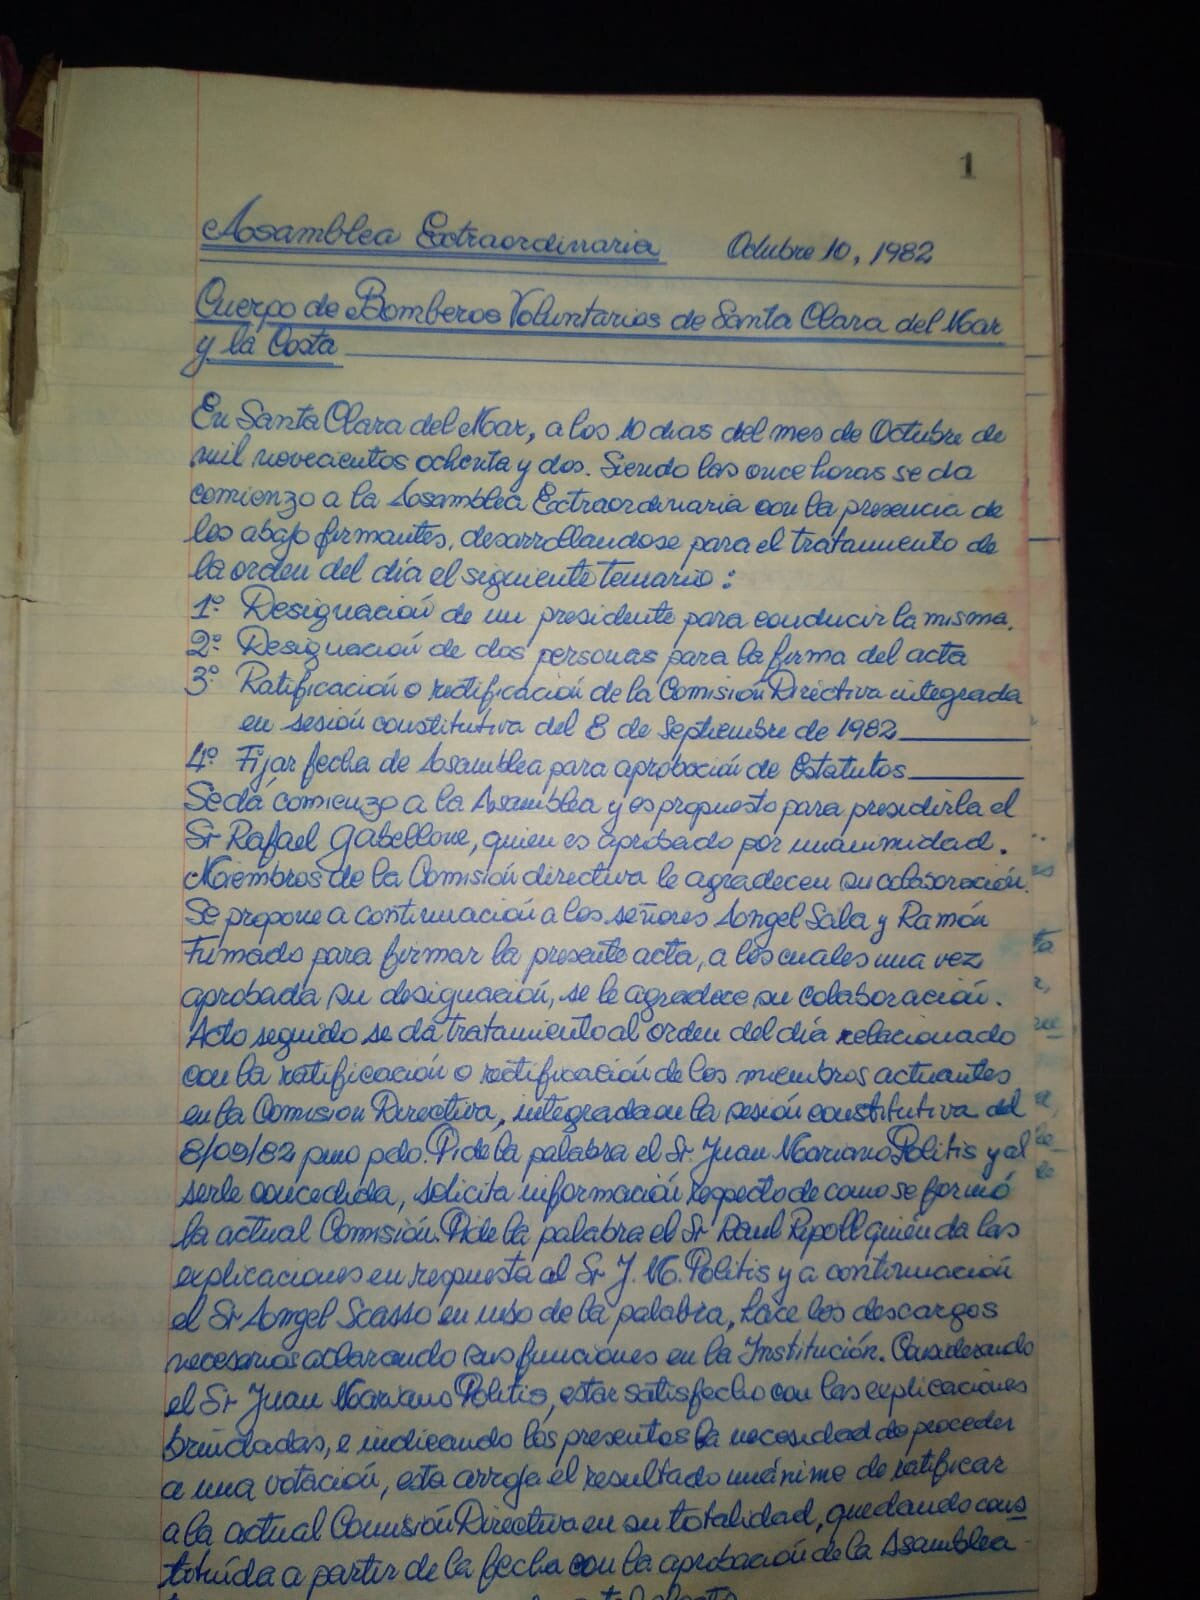 1
Asamblea Extraordinaria Octubre 10, 1982
Cuerpo de Bomberos Voluntarios de Santa Clara del Mar
y la Costa
En Santa Clara del Mar, a los 10 dias del mes de Octubre de
mil novecientos ochenta y dos. Siendo las once horas se da
comienzo a la Asamblea Extraordinaria con la presencia de
los abajo firmantes, desarrollandose para el tratamiento de
la orden del día el siguiente temario:
1º Designación de un presidente para conducir la misma.
2º Designación de dos personas para la firma del acta
3º Ratificación o rectificación de la Comisión Directiva integrada
en sesión constitutiva del 8 de Septiembre de 1982
4º Fijar fecha de Asamblea para aprobación de Estatutos
Se dá comienzo a la Asamblea y es propuesto para presidirla el
Sr Rafael Gabellone, quien es aprobado por unanimidad.
Miembros de la Comisión directiva le agradecen su colaboración.
Se propone a continuación a los señores Angel Sala y Ramón
Fumado para firmar la presente acta, a los cuales una vez
aprobada su designación, se le agradece su colaboración.
Acto seguido se da tratamiento al orden del día relacionado
con la ratificación o rectificación de los miembros actuantes
en la Comision Directiva, integrada en la sesión constitutiva del
8/09/82 pmo pdo. Pide la palabra el Sr. Juan Mariano Politis y al
serle concedida, solicita información respecto de como se formó
la actual Comisión. Pide la palabra el Sr Raul Ripoll quién da las
explicaciones en respuesta al Sr J. M. Politis y a continuación
el Sr Angel Scasso en uso de la palabra, hace los descargos
necesarios aclarando sus funciones en la Institución. Considerando
el Sr Juan Mariano Politis, estar satisfecho con las explicaciones
brindadas, e indicando los presentes la necesidad de proceder
a una votación, esta arroja el resultado unánime de ratificar
a la actual Comisión Directiva en su totalidad, quedando cons
tituída a partir de la fecha con la aprobación de la Asamblea